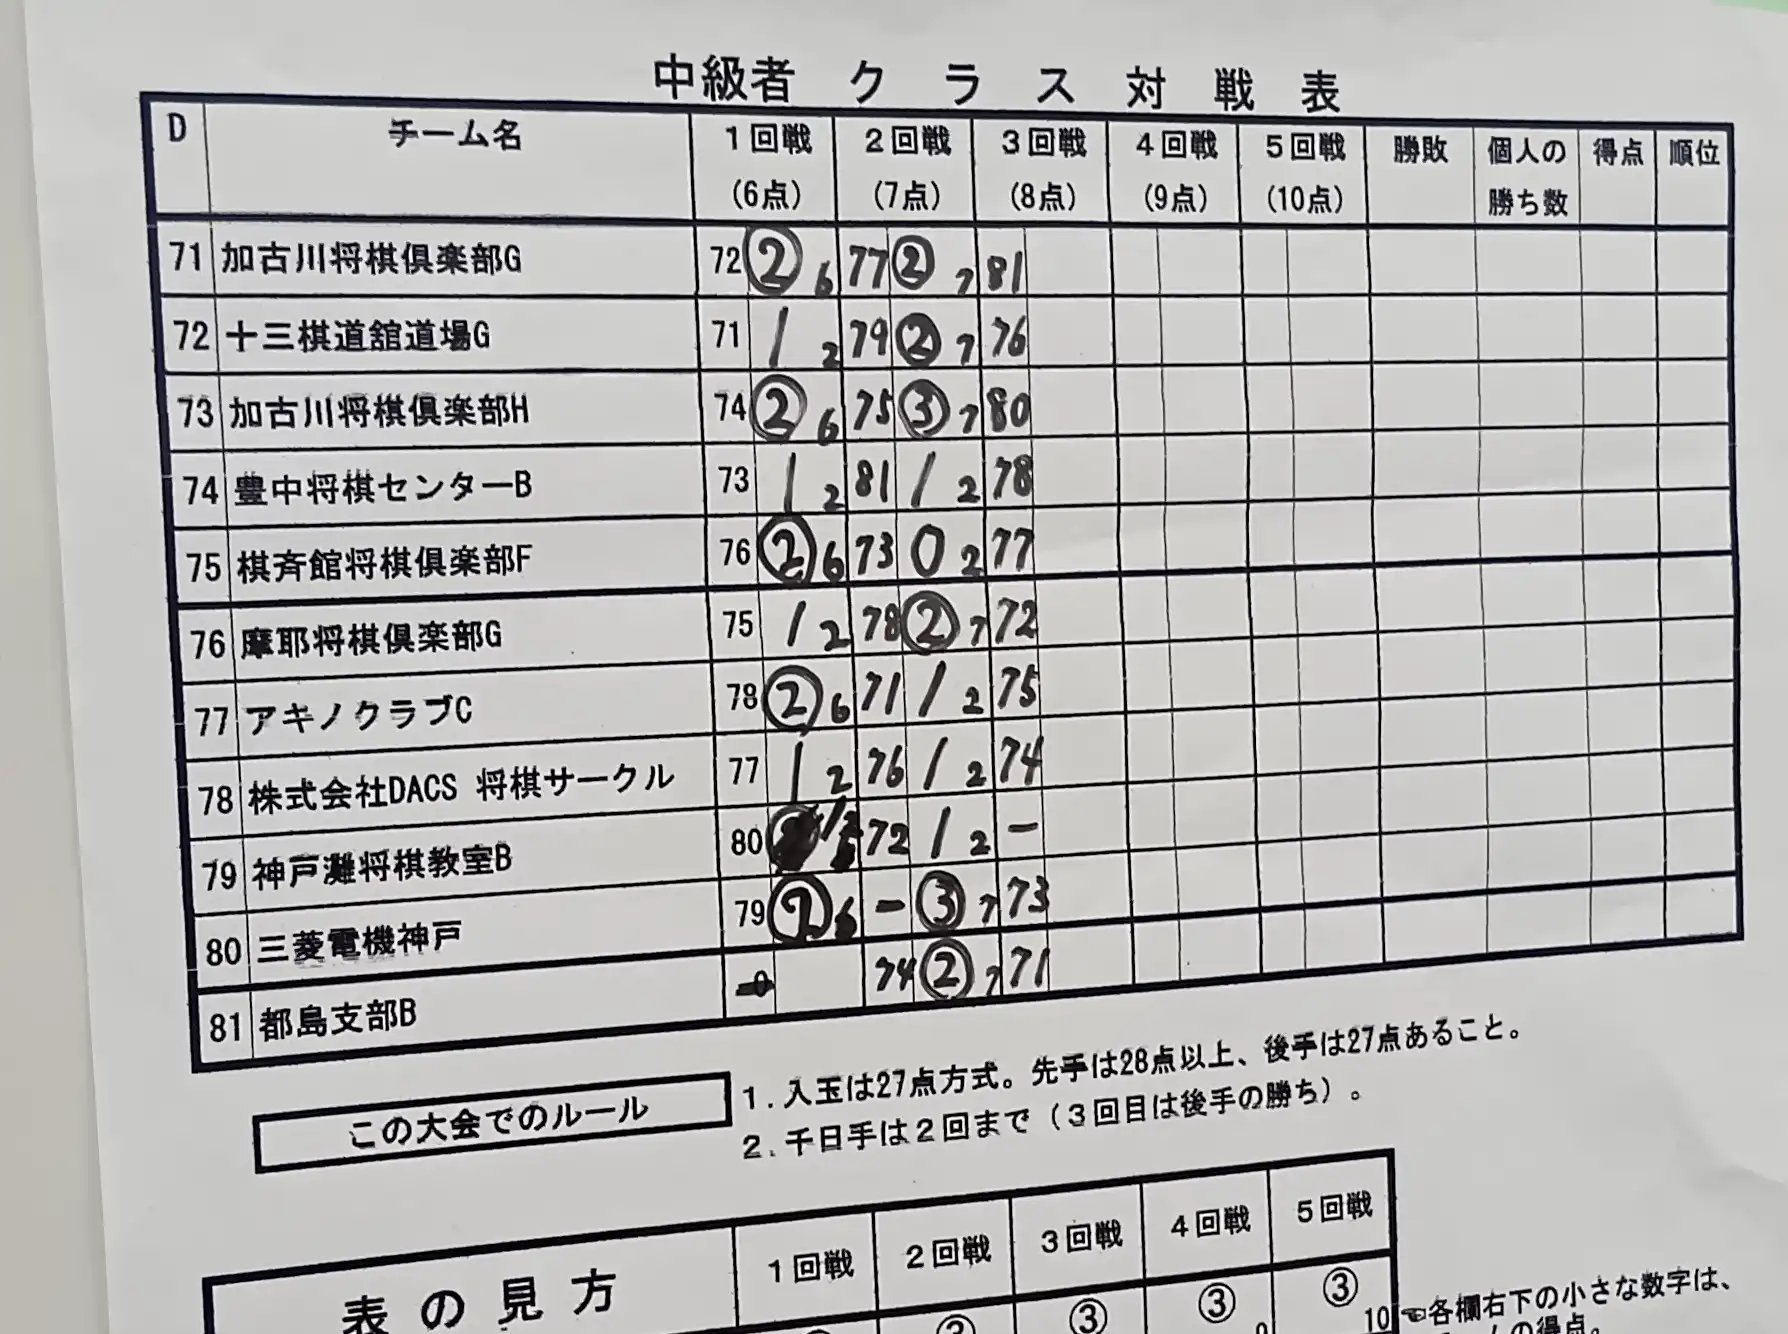 中級者 クラス対戦表
D チーム名 1回戦 2回戦 3回戦 4回戦 5回戦 勝敗 個人の 得点 順位
(6点) (7点) (8点) (9点) (10点) 勝ち数
71 加古川将棋倶楽部G 72 ② 6 77 ② 7 81
72 十三棋道舘道場G 71 1 2 79 ② 7 76
73 加古川将棋倶楽部H 74 ② 6 75 ③ 7 80
74 豊中将棋センターB 73 1 2 81 1 2 78
75 棋斉館将棋倶楽部F 76 ② 6 73 0 2 77
76 摩耶将棋倶楽部G 75 1 2 78 ② 7 72
77 アキノクラブC 78 ② 6 71 1 2 75
78 株式会社DACS 将棋サークル 77 1 2 76 1 2 74
79 神戸灘将棋教室B 80 72 1 2 -
80 三菱電機神戸 79 ② 6 - ③ 7 73
81 都島支部B 74 ② 7 71
この大会でのルール
1. 入玉は27点方式。先手は28点以上、後手は27点あること。
2. 千日手は2回まで(3回目は後手の勝ち)。
表の見方 1回戦 2回戦 3回戦 4回戦 5回戦
③ ③ ③ 10
☜各欄右下の小さな数字は、
の得点。